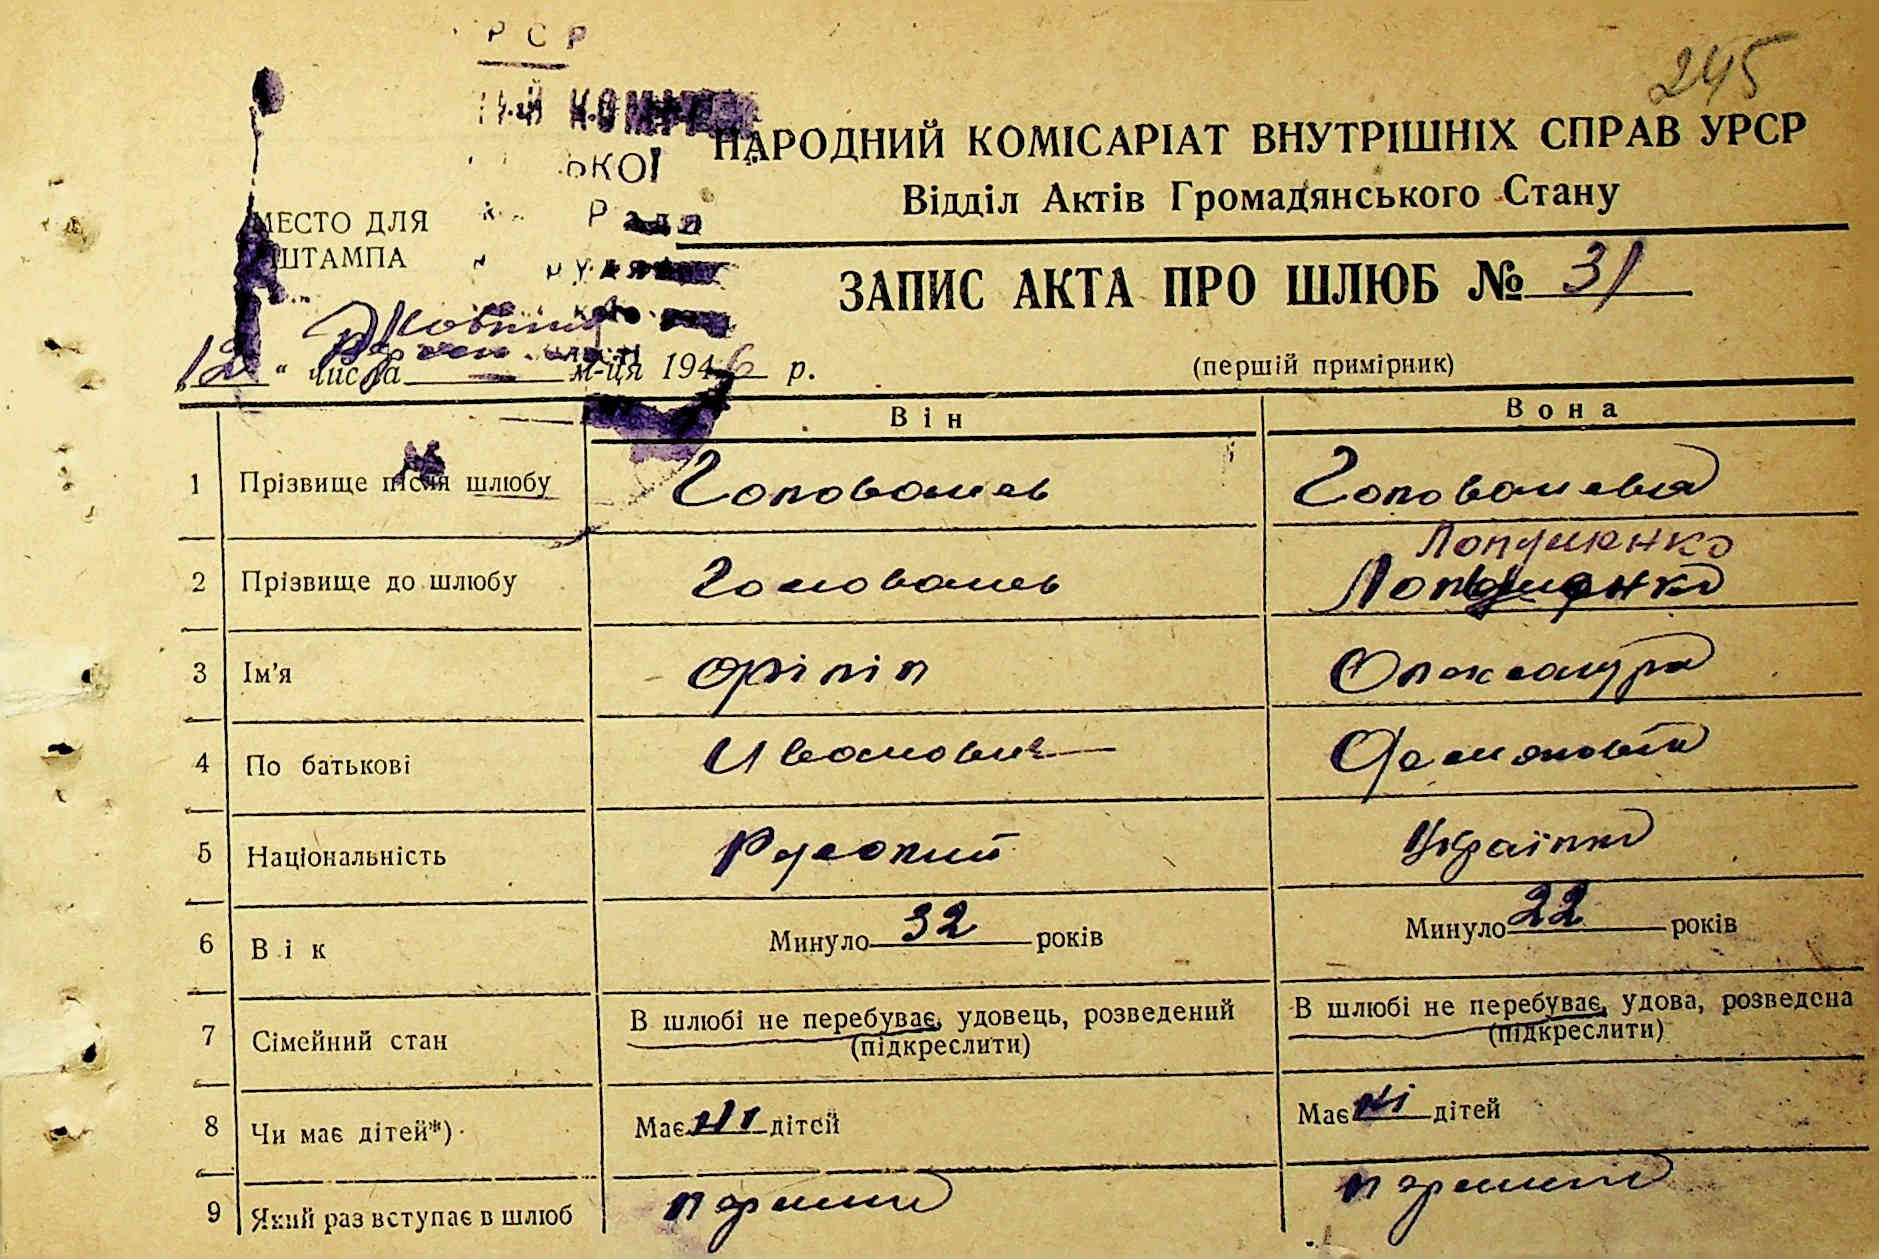 245
РСР
КОМІ
ЬКОЇ
Рада
НАРОДНИЙ КОМІСАРІАТ ВНУТРІШНІХ СПРАВ УРСР
Відділ Актів Громадянського Стану
МЕСТО ДЛЯ
ШТАМПА
ЗАПИС АКТА ПРО ШЛЮБ № 31
"12" числа м-ця 1946 р.
(першій примірник)
Він Вона
1 Прізвище після шлюбу Головачев Головачева
Лопушенко
2 Прізвище до шлюбу Головачев Лопушенко
3 Ім'я Філіп Олександра
4 По батькові Иванович
5 Національність Руський Українка
6 Вік Минуло 32 років Минуло 22 років
7 Сімейний стан В шлюбі не перебуває, удовець, розведений В шлюбі не перебуває, удова, розведена
(підкреслити) (підкреслити)
8 Чи має дітей*) Має ні дітей Має ні дітей
9 Який раз вступає в шлюб перший перший